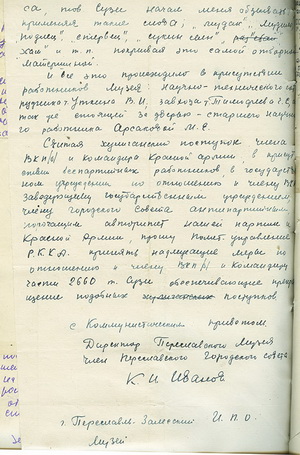 са, тов Сузи начал меня обзывать
применяя такие слова: "гидао" "
подлец", "стервец", "сукин сын",
хам" и т.п. покрывая это самой отборной
"матерщиной".
И все это происходило в присутствии
работников Музея: научно-технического со
трудника т. Уткина В.И., завхоза т.
так же стоящей за дверью - старшего научно
го работника Арсаковой М.С.
Считая хулиганский поступок члена
ВКП/б/ и командира Красной армии, в присут
ствии беспартийных работников, в государствен
ном учреждении по отношению к члену ВКП
заведующему государственным учреждением,
члену городского Совета антипартийным,
авторитет нашей партии и
Красной Армии, прошу Полит. управление
Р.К.К.А. принять надлежащие меры по
отношению к члену ВКП/б/ и командиру
части 2660 т. Сузи обеспечивающее прекра
щение подобных хулиганских поступков
с Коммунистическим приветом
Директор Переславского Музея
член Переславского Городского совета
К И Иванов
г. Переславль-Залесский И.П.О.
Музей